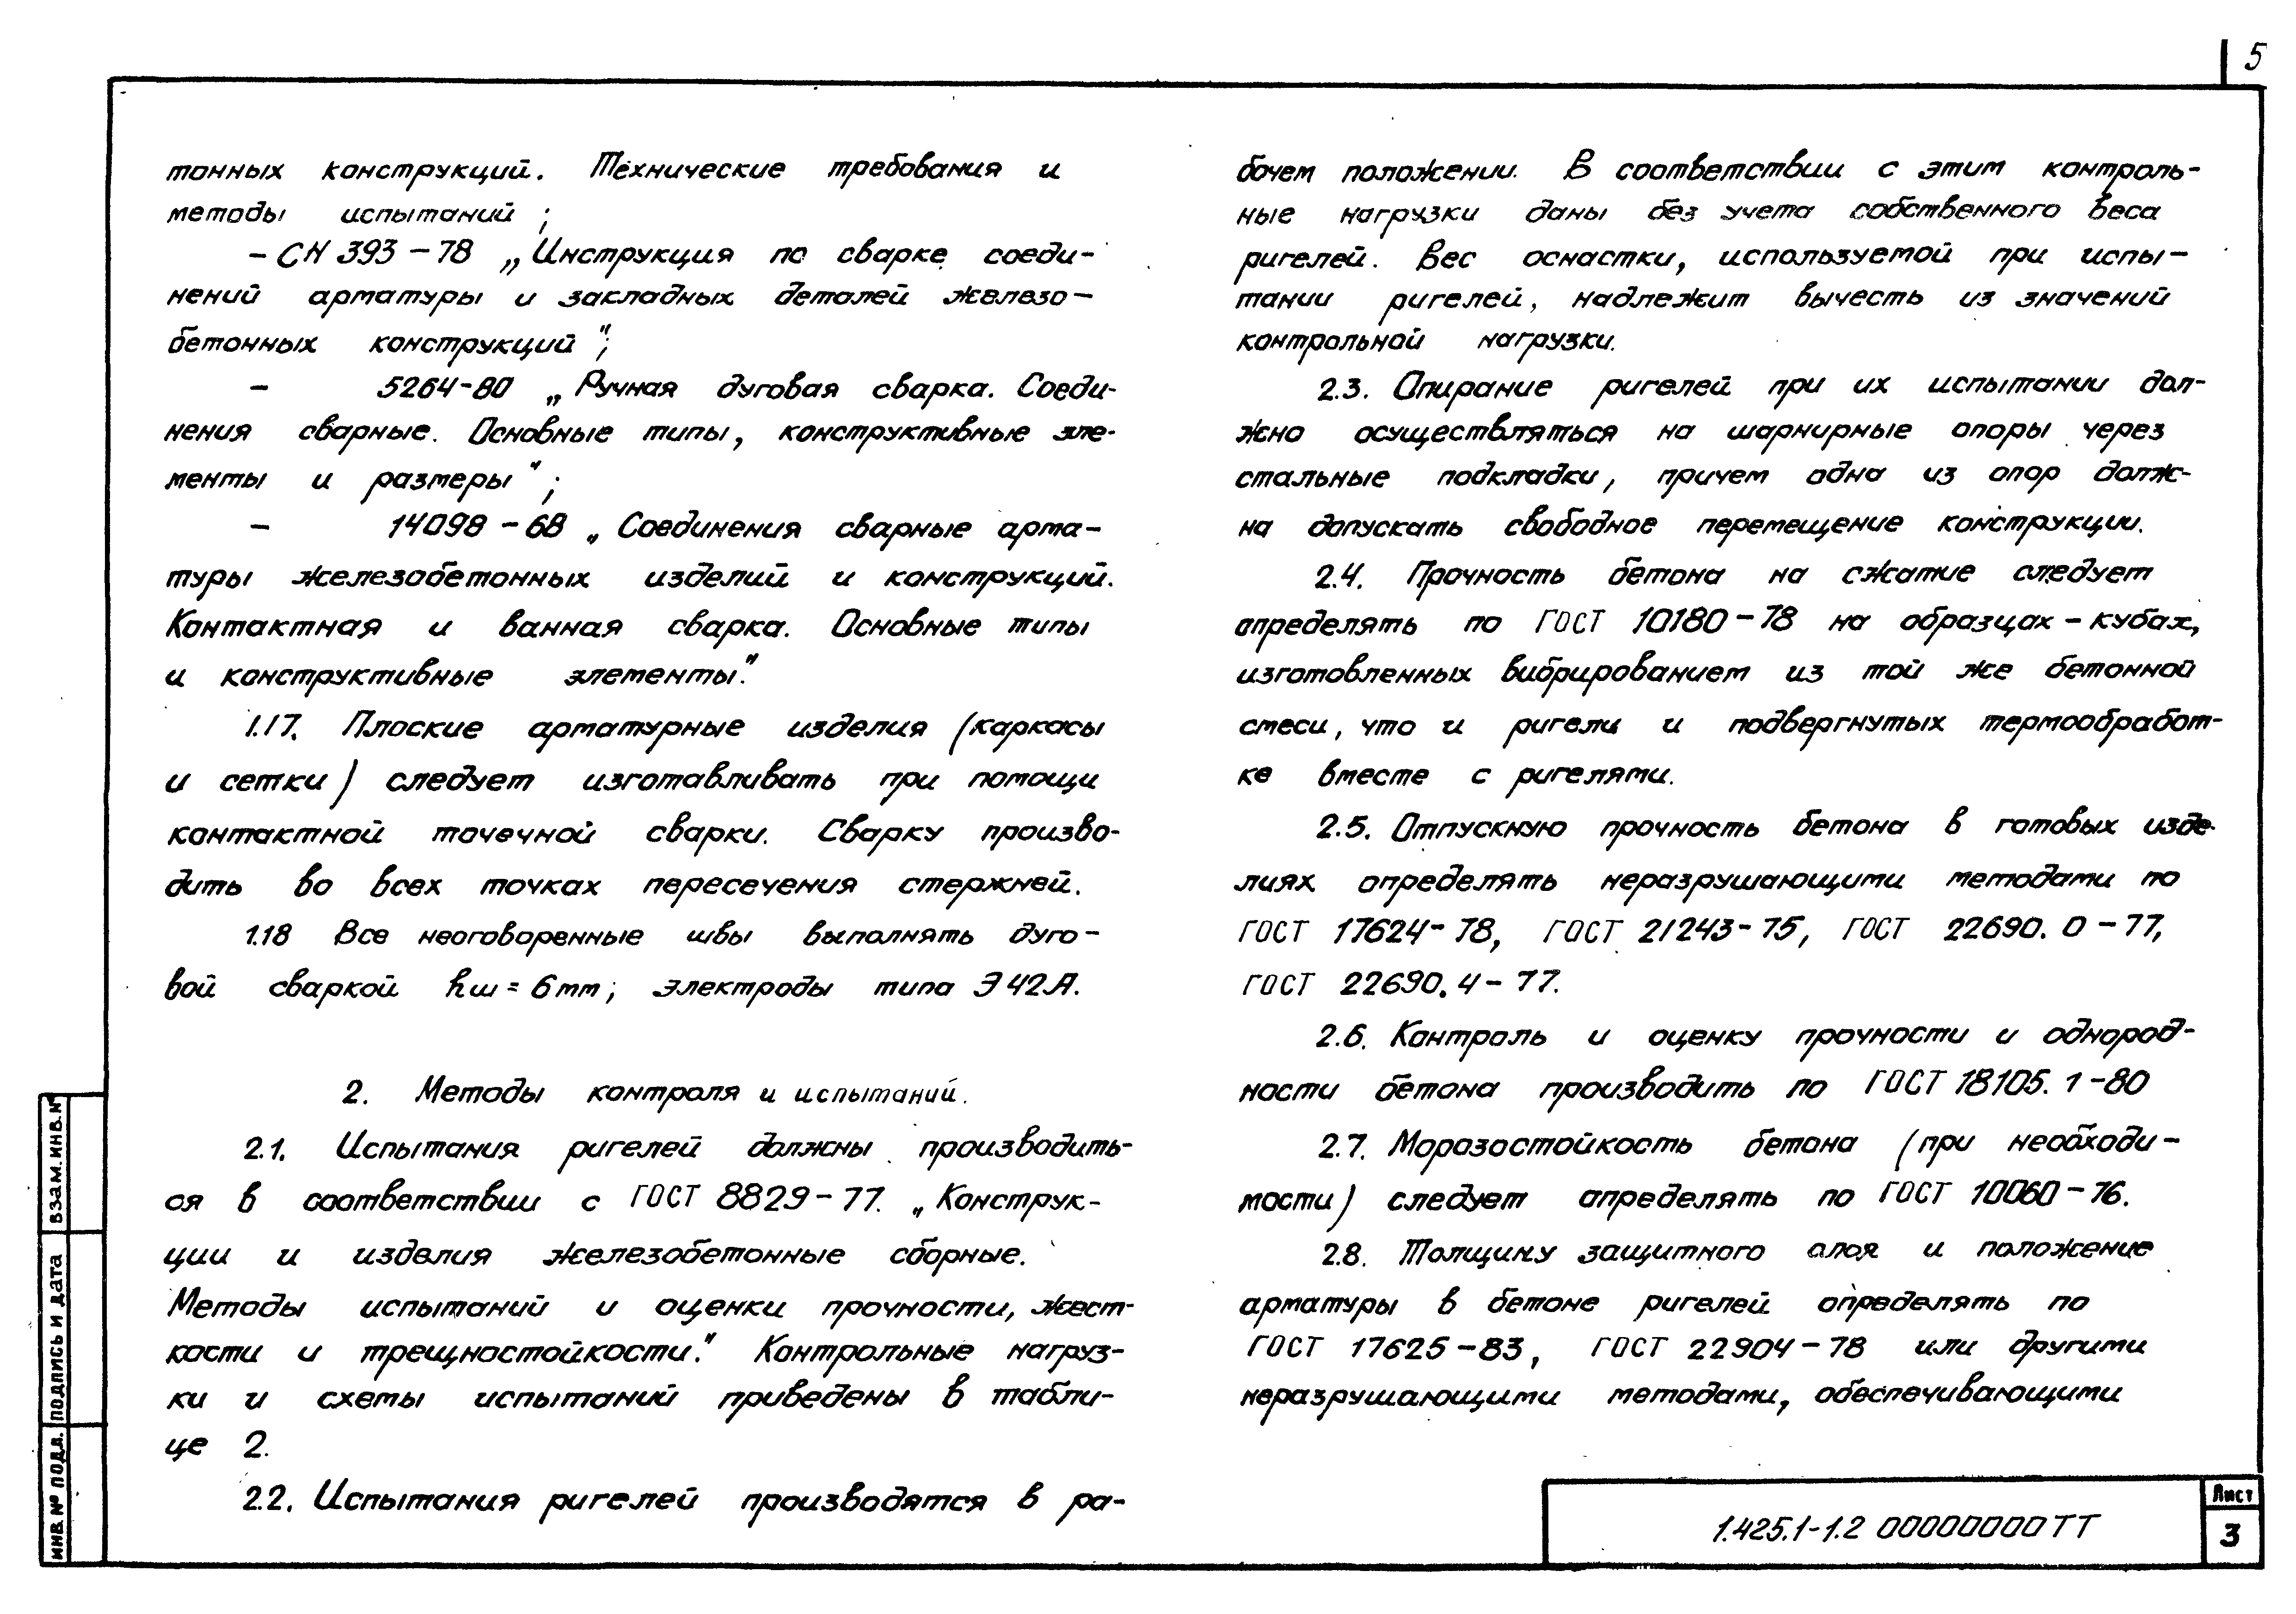 5
тонных конструкций. Технические требования и
методы испытаний ;
- СН 393-78 „Инструкция по сварке соеди-
нений арматуры и закладных деталей железо-
бетонных конструкций";
- 5264-80 „Ручная дуговая сварка. Соеди-
нения сварные. Основные типы, конструктивные эле-
менты и размеры";
- 14098-68 „Соединения сварные арма-
туры железобетонных изделий и конструкций.
Контактная и ванная сварка. Основные типы
и конструктивные элементы."
1.17. Плоские арматурные изделия (каркасы
и сетки) следует изготавливать при помощи
контактной точечной сварки. Сварку произво-
дить во всех точках пересечения стержней.
1.18 Все неоговоренные швы выполнять дуго-
вой сваркой hш=6мм; электроды типа Э42А.
2. Методы контроля и испытаний.
2.1. Испытания ригелей должны производить-
ся в соответствии с ГОСТ 8829-77. „Конструк-
ции и изделия железобетонные сборные.
Методы испытаний и оценки прочности, жест-
кости и трещностойкости." Контрольные нагруз-
ки и схемы испытаний приведены в табли-
це 2.
2.2. Испытания ригелей производятся в ра-
бочем положении. В соответствии с этим контроль-
ные нагрузки даны без учета собственного веса
ригелей. Вес оснастки, используемой при испы-
тании ригелей, надлежит вычесть из значений
контрольной нагрузки.
2.3. Опирание ригелей при их испытании дол-
жно осуществляться на шарнирные опоры через
стальные подкладки, причем одна из опор долж-
на допускать свободное перемещение конструкции.
2.4. Прочность бетона на сжатие следует
определять по ГОСТ 10180-78 на образцах-кубах,
изготовленных вибрированием из той же бетонной
смеси, что и ригели и подвергнутых термообработ-
ке вместе с ригелями.
2.5. Отпускную прочность бетона в готовых изде-
лиях определять неразрушающими методами по
ГОСТ 17624-78, ГОСТ 21243-75, ГОСТ 22690.0-77,
ГОСТ 22690.4-77.
2.6. Контроль и оценку прочности и однород-
ности бетона производить по ГОСТ 18105.1-80
2.7. Морозостойкость бетона (при необходи-
мости) следует определять по ГОСТ 10060-76.
2.8. Толщину защитного слоя и положение
арматуры в бетоне ригелей определять по
ГОСТ 17625-83, ГОСТ 22904-78 или другими
неразрушающими методами, обеспечивающими
ИНВ. № ПОДЛ. ПОДПИСЬ И ДАТА ВЗАМ. ИНВ. №
1.425.1-1.2 00000000ТТ
Лист
3